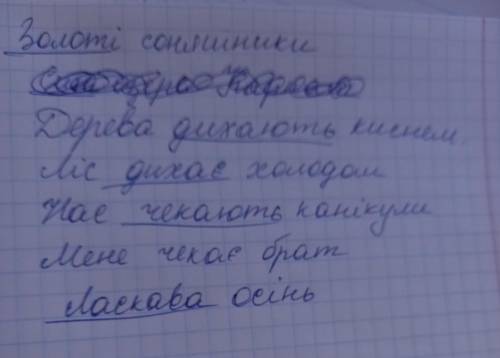 Золоті соняшники
Дерева дихають киснем.
Ліс дихає холодом
Нас чекають канікули
Мене чекає брат
Ласкава осінь